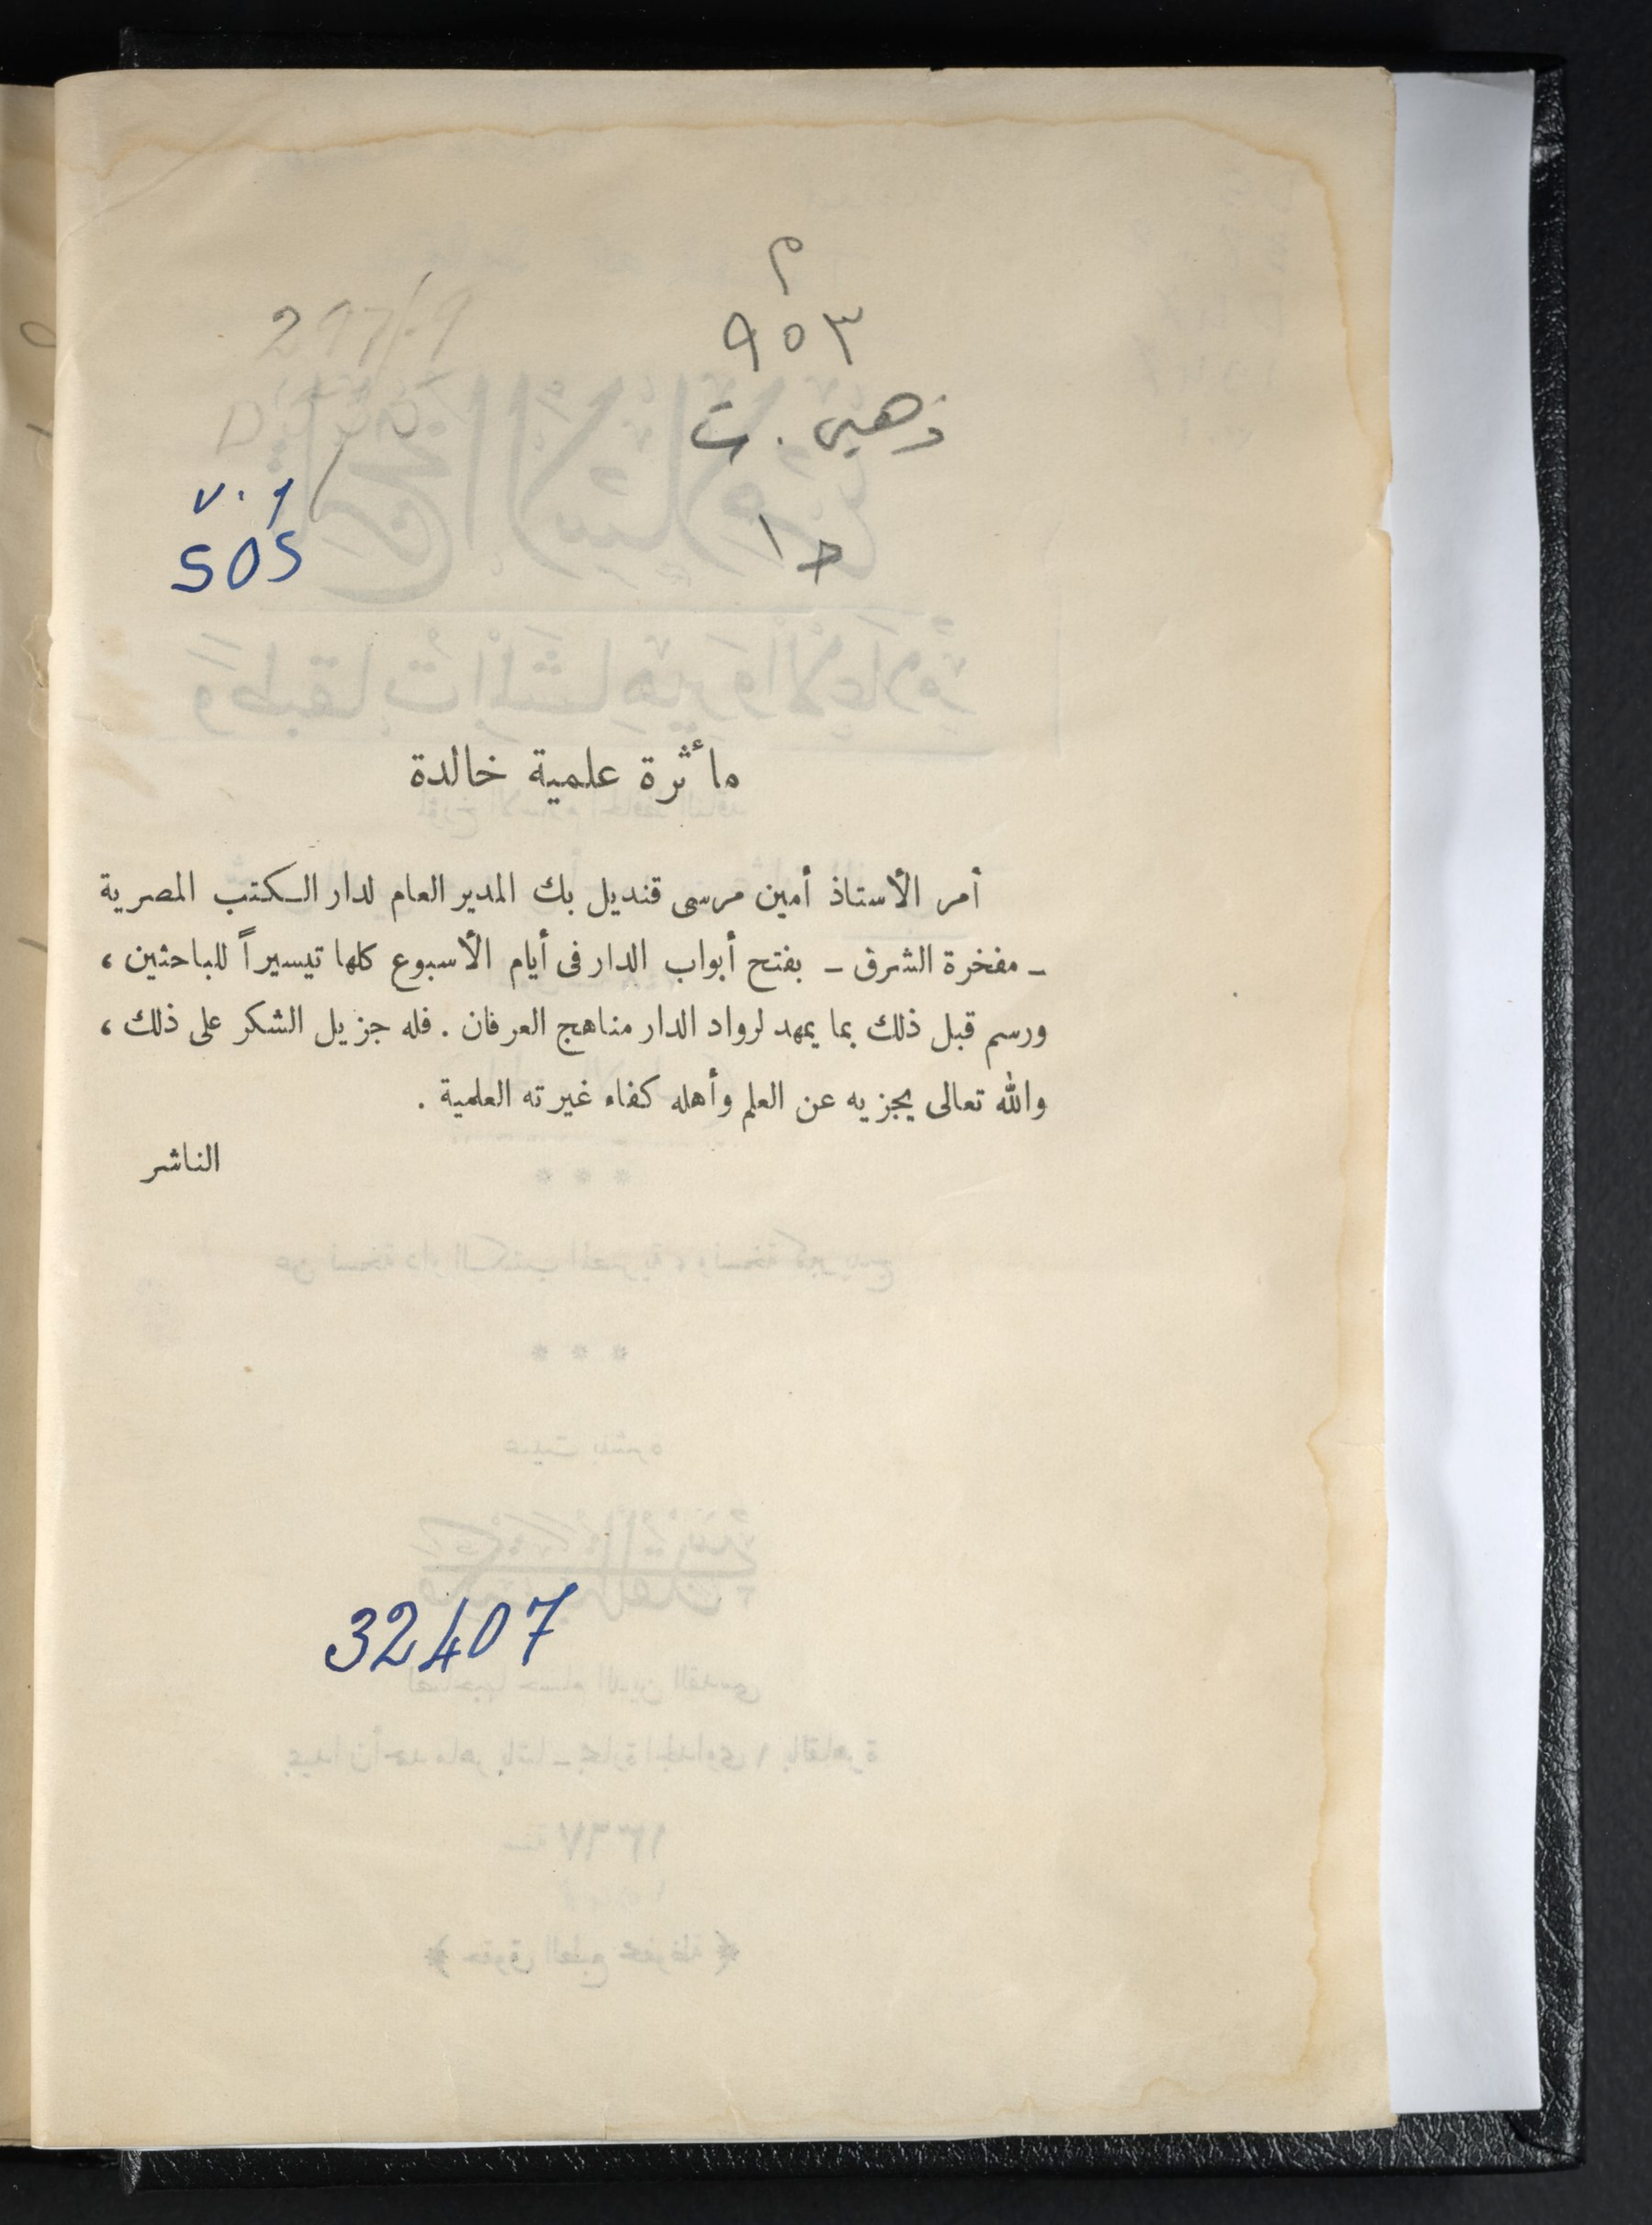 م
٩٥٣
ذهبى . ت
ج ١
297/.9
v.1
505
مأثرة علمية خالدة
أمر الأستاذ أمين مرسى قنديل بك المدير العام لدار الكتب المصرية
ـ مفخرة الشرق ـ بفتح أبواب الدار فى أيام الأسبوع كلها تيسيراً للباحثين ،
ورسم قبل ذلك بما يمهد لرواد الدار مناهج العرفان . فله جزيل الشكر على ذلك ،
والله تعالى يجزيه عن العلم وأهله كفاء غيرته العلمية .
الناشر
32407